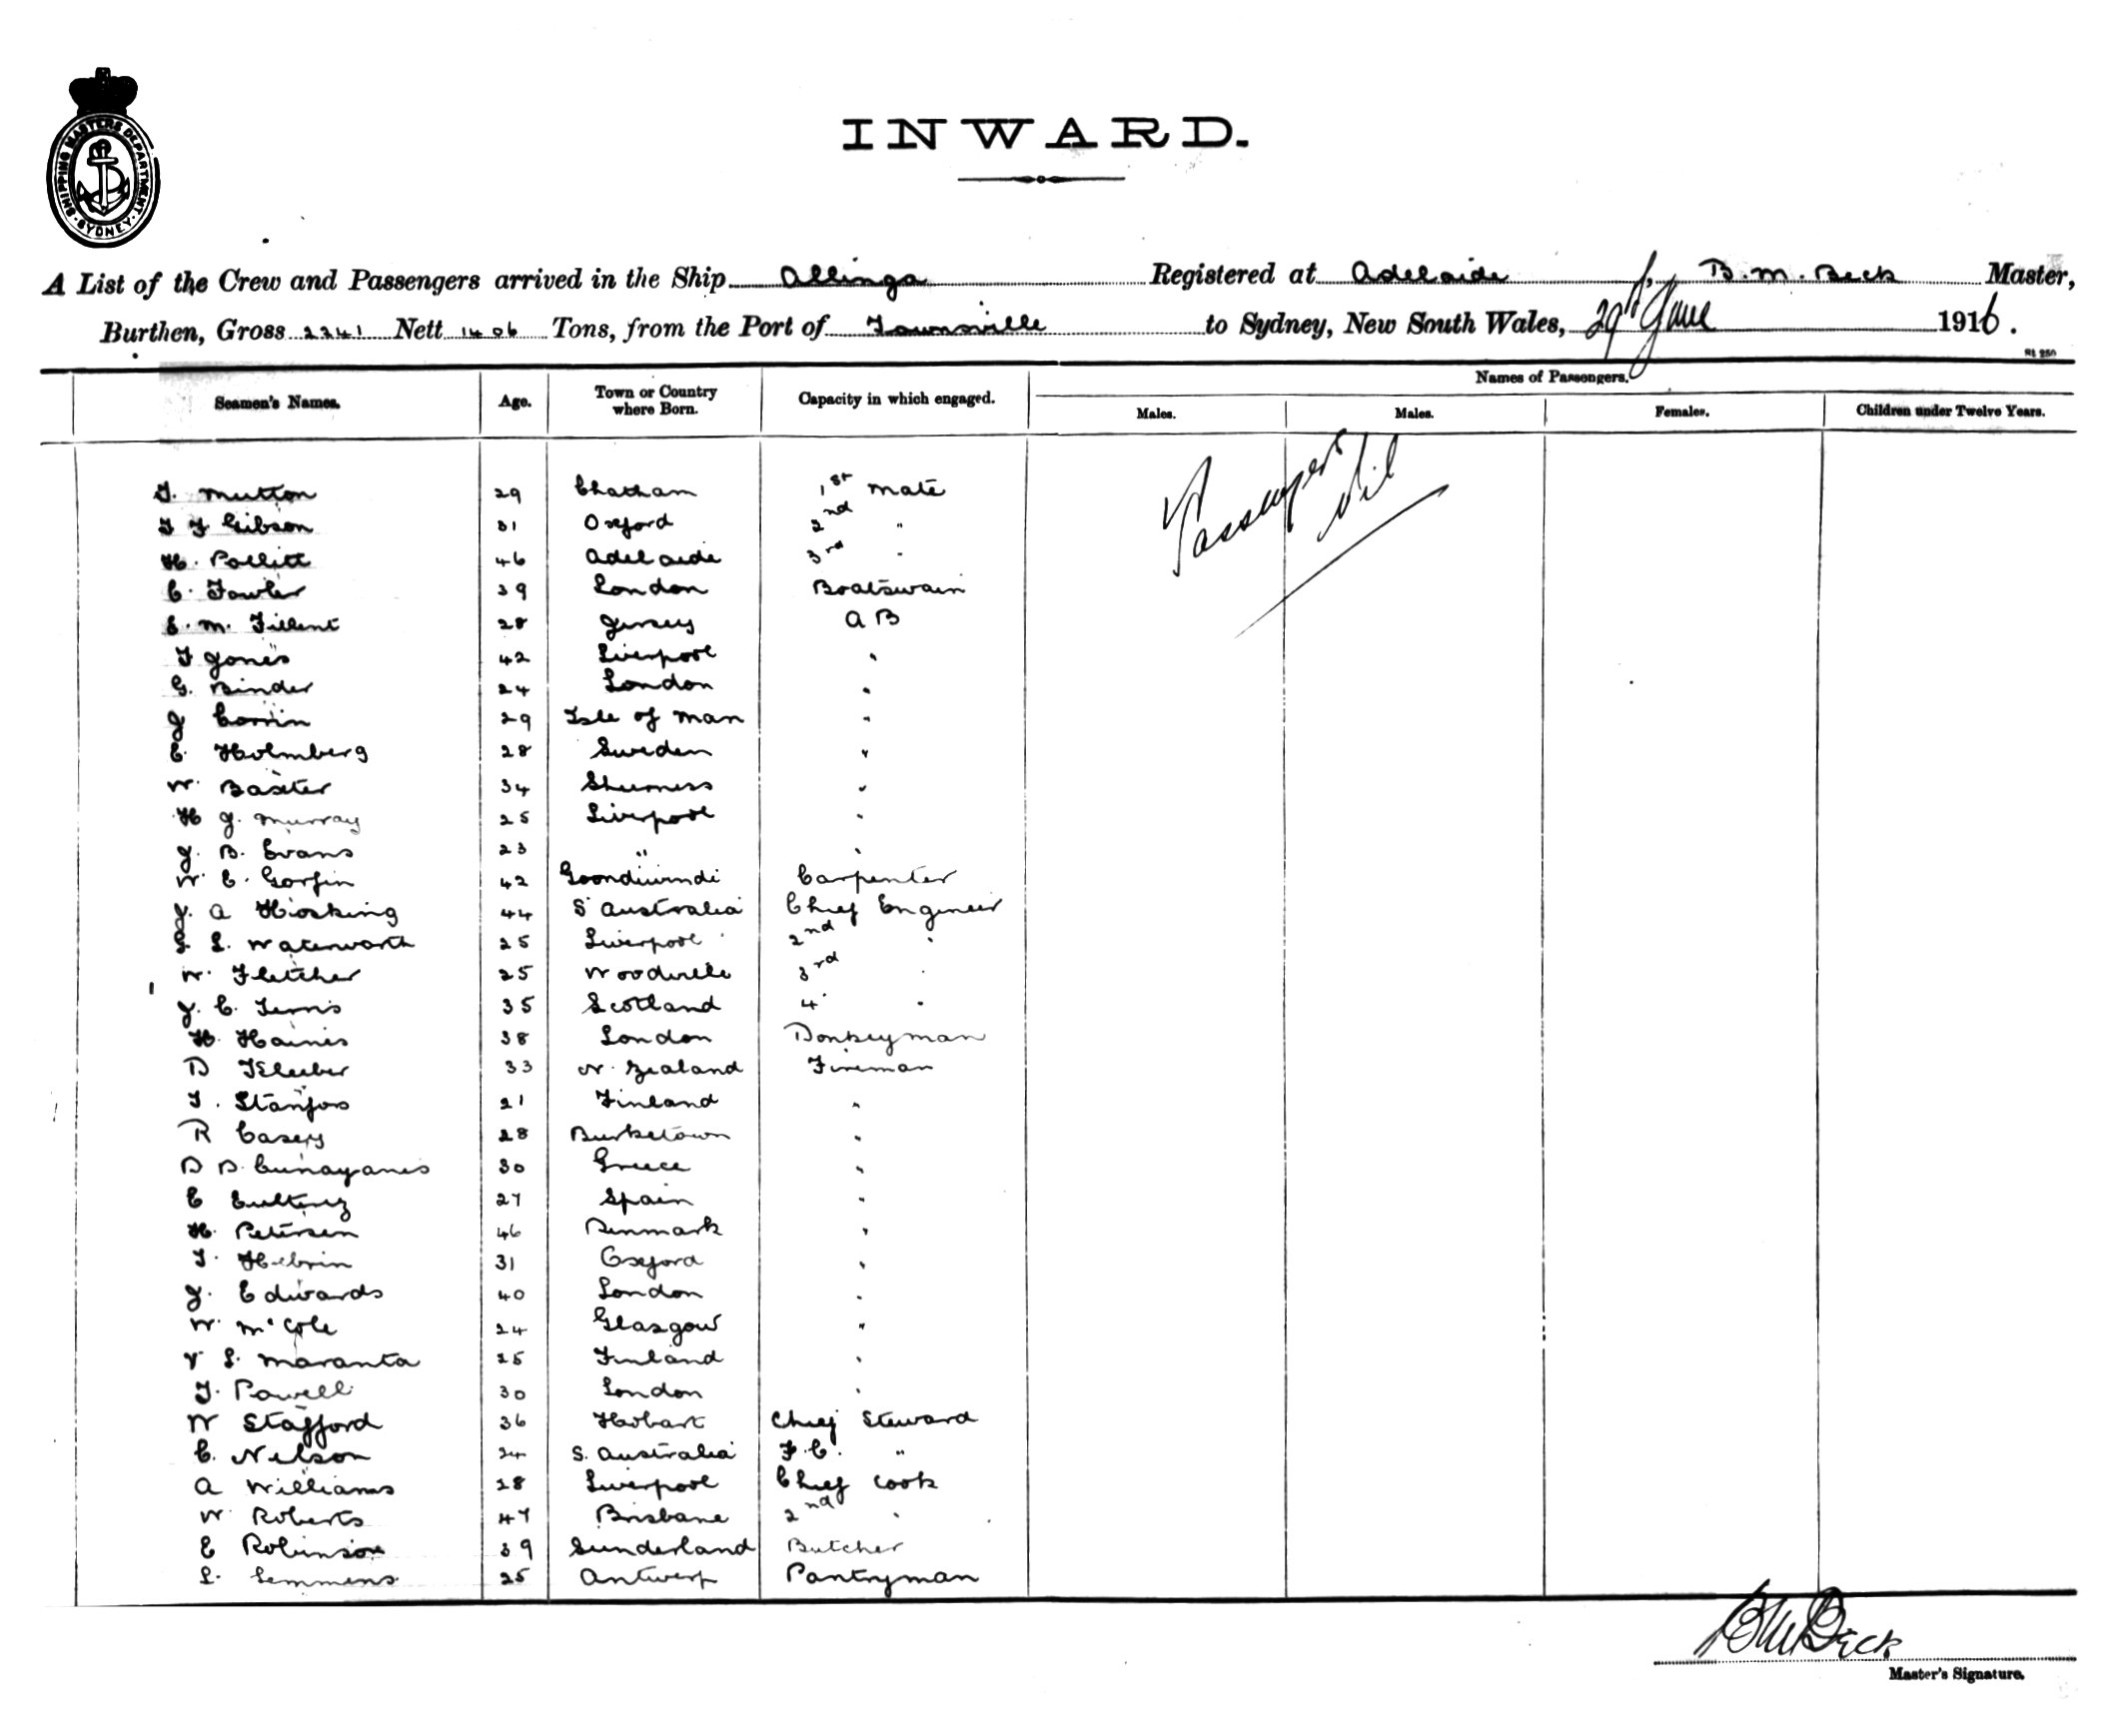 SHIPPING MASTERS DEPARTMENT. SYDNEY
INWARD.
A List of the Crew and Passengers arrived in the Ship Allinga Registered at Adelaide B. M. Beck Master,
Burthen, Gross 2241 Nett 1406 Tons, from the Port of Townsville to Sydney, New South Wales, 29th June 1916.
Names of Passengers.
Seamen's Names. Age. Town or Country where Born. Capacity in which engaged. Males. Males. Females. Children under Twelve Years.
Passengers Nil
T. Mutton 29 Chatham 1st Mate
T F Gibson 31 Oxford 2nd "
H. Pollitt 46 Adelaide 3rd "
C. Fowler 39 London Boatswain
E. M. Fillent 28 Jersey A B
F Jones 42 Liverpool "
G. Binder 24 London "
J Corrin 29 Isle of Man "
E. Holmberg 28 Sweden "
W. Baxter 34 Sheerness "
H J. Murray 25 Liverpool "
J. B. Evans 23 " "
W. E. Gorfin 42 Goondiwindi Carpenter
J. A Hosking 44 S Australia Chief Engineer
L. Waterworth 25 Liverpool 2nd "
W. Fletcher 25 Woodville 3rd "
J. C. 35 Scotland 4 "
H. Haines 38 London Donkeyman
D 33 N. Zealand Fireman
T. Stanfors 21 Finland "
R Casey 28 Burketown "
D D. 30 Greece "
E 27 Spain "
H. Petersen 46 Denmark "
T. Hebrin 31 Oxford "
J. Edwards 40 London "
W. McCole 24 Glasgow "
V L. Maranta 25 Finland "
T. Powell 30 London "
W Stafford 36 Hobart Chief Steward
C. Nelson 24 S. Australia F. C. "
A Williams 28 Liverpool Chief Cook
W Roberts 47 Brisbane 2nd "
E Robinson 39 Sunderland Butcher
L. Lemmens 25 Antwerp Pantryman
B M Beck
Master's Signature.